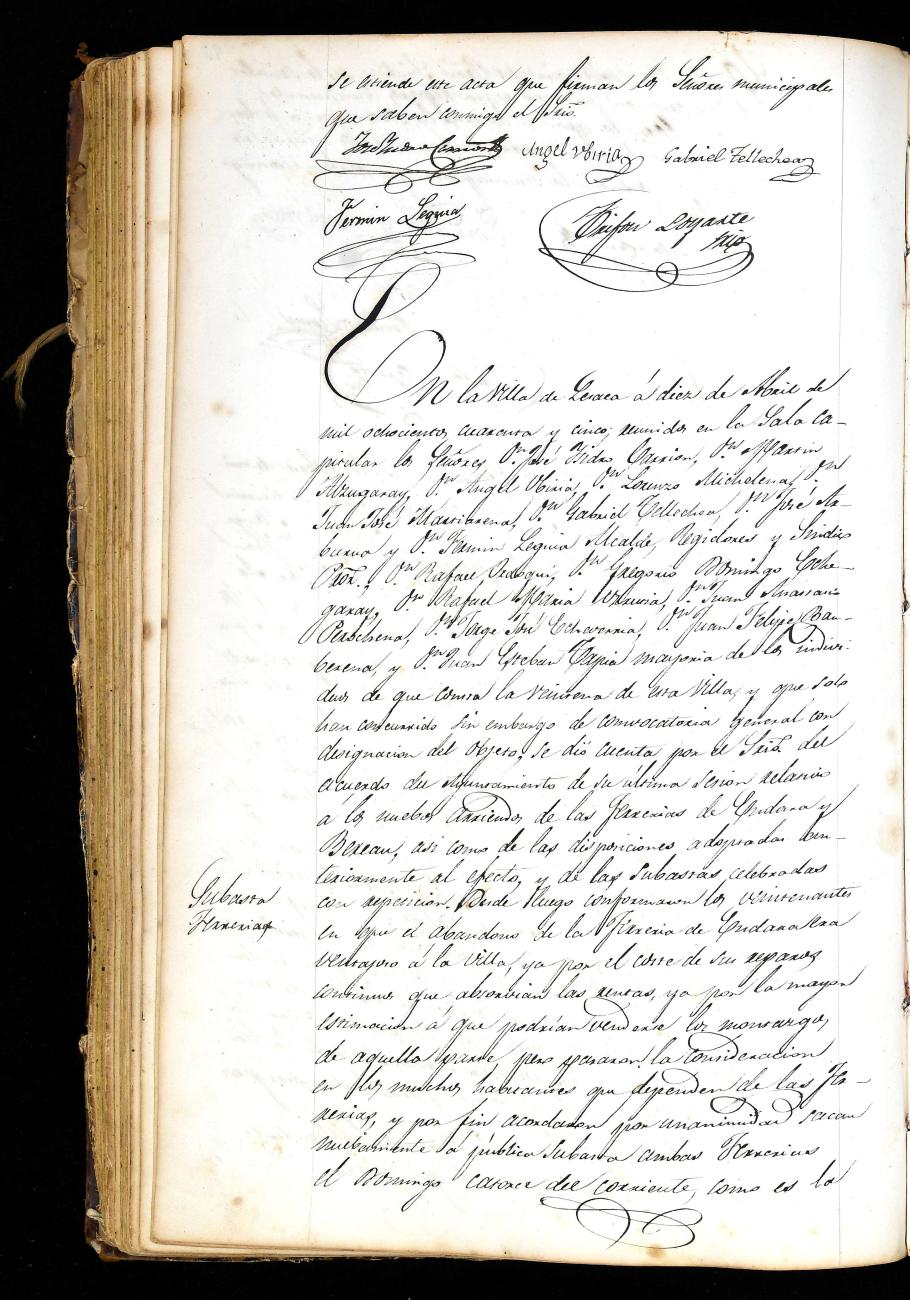 se estiende este acta que firman los Señores municipales
que saben conmigo el Srio.
Angel Ubiria Gabriel Tellechea
Fermin Leguia
Trifon Loyarte
Srio
En la Villa de Lesaca á diez de Abril de
mil ochocientos cuarenta y cinco, reunidos en la Sala ca-
pitular los Señores Dn. José Isidro Carrion, Dn. Martin
Alzugaray, Dn. Angel Ubiria, Dn. Lorenzo Michelena, Dn.
Juan José Marticorena, Dn. Gabriel Tellechea, Dn. José Ar-
burua y Dn. Fermin Leguia Alcalde, Regidores y Sindico
Pror., Dn. Rafael Dn. Gregorio Domingo Eche-
garay, Dn. Rafael Maria Dn. Juan Anastasio
Perochena, Dn. Jorge José Echeverria, Dn. Juan Felipe Ran-
berena, y Dn. Juan Esteban Tapia mayoria de los indivi-
duos de que consta la veintena de esta Villa, y que solo
han concurrido sin embargo de convocatoria general con
designacion del objeto, se dió cuenta por el Srio. del
acuerdo del Ayuntamiento de su última sesion relativo
á los nuebos arriendos de las Ferrerias de Endara y
Berean, asi como de las disposiciones adoptadas an-
teriormente al efecto, y de las subastas celebradas
con repeticion. Desde luego conformaron los veintenantes
Subasta
Ferrerias
en que el abandono de la Ferreria de Endara sera
ventajoso á la villa, ya por el coste de sus reparos
continuos que absorvian las rentas, ya por la mayor
estimacion á que podrian venderse los montazgos
de aquella parte, pero pararon la consideracion
en los muchos habitantes que dependen de las Fer-
rerias, y por fin acordaron por unanimidad sacar
nuebamente á pública subasta ambas Ferrerias
el Domingo catorce del corriente, como es la